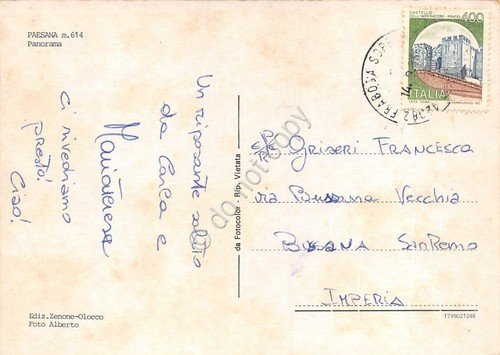 PAESANA m.614
Panorama
Un riposante saluto
da Carla e
Mariateresa
Ci rivediamo
presto!
Ciao!
Ediz.Zenone-Olocco
Foto Alberto
da Fotocolor - Rip. Vietata
do not copy
CASTELLO
DELL'IMPERATORE - PRATO
400
ITALIA
FRABOSA SOPR
GRISERI FRANCESCA
via Bussana Vecchia
BUSSANA SANREMO
IMPERIA
1799021246